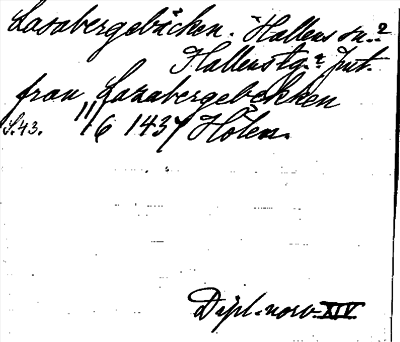 Lasabergebäcken. Hallens sn.?
Hallens tg.? Jmt.
fran Lasabergebekken
S. 43. 11/6 1437 Hólen.
Dipl. norv. XIV